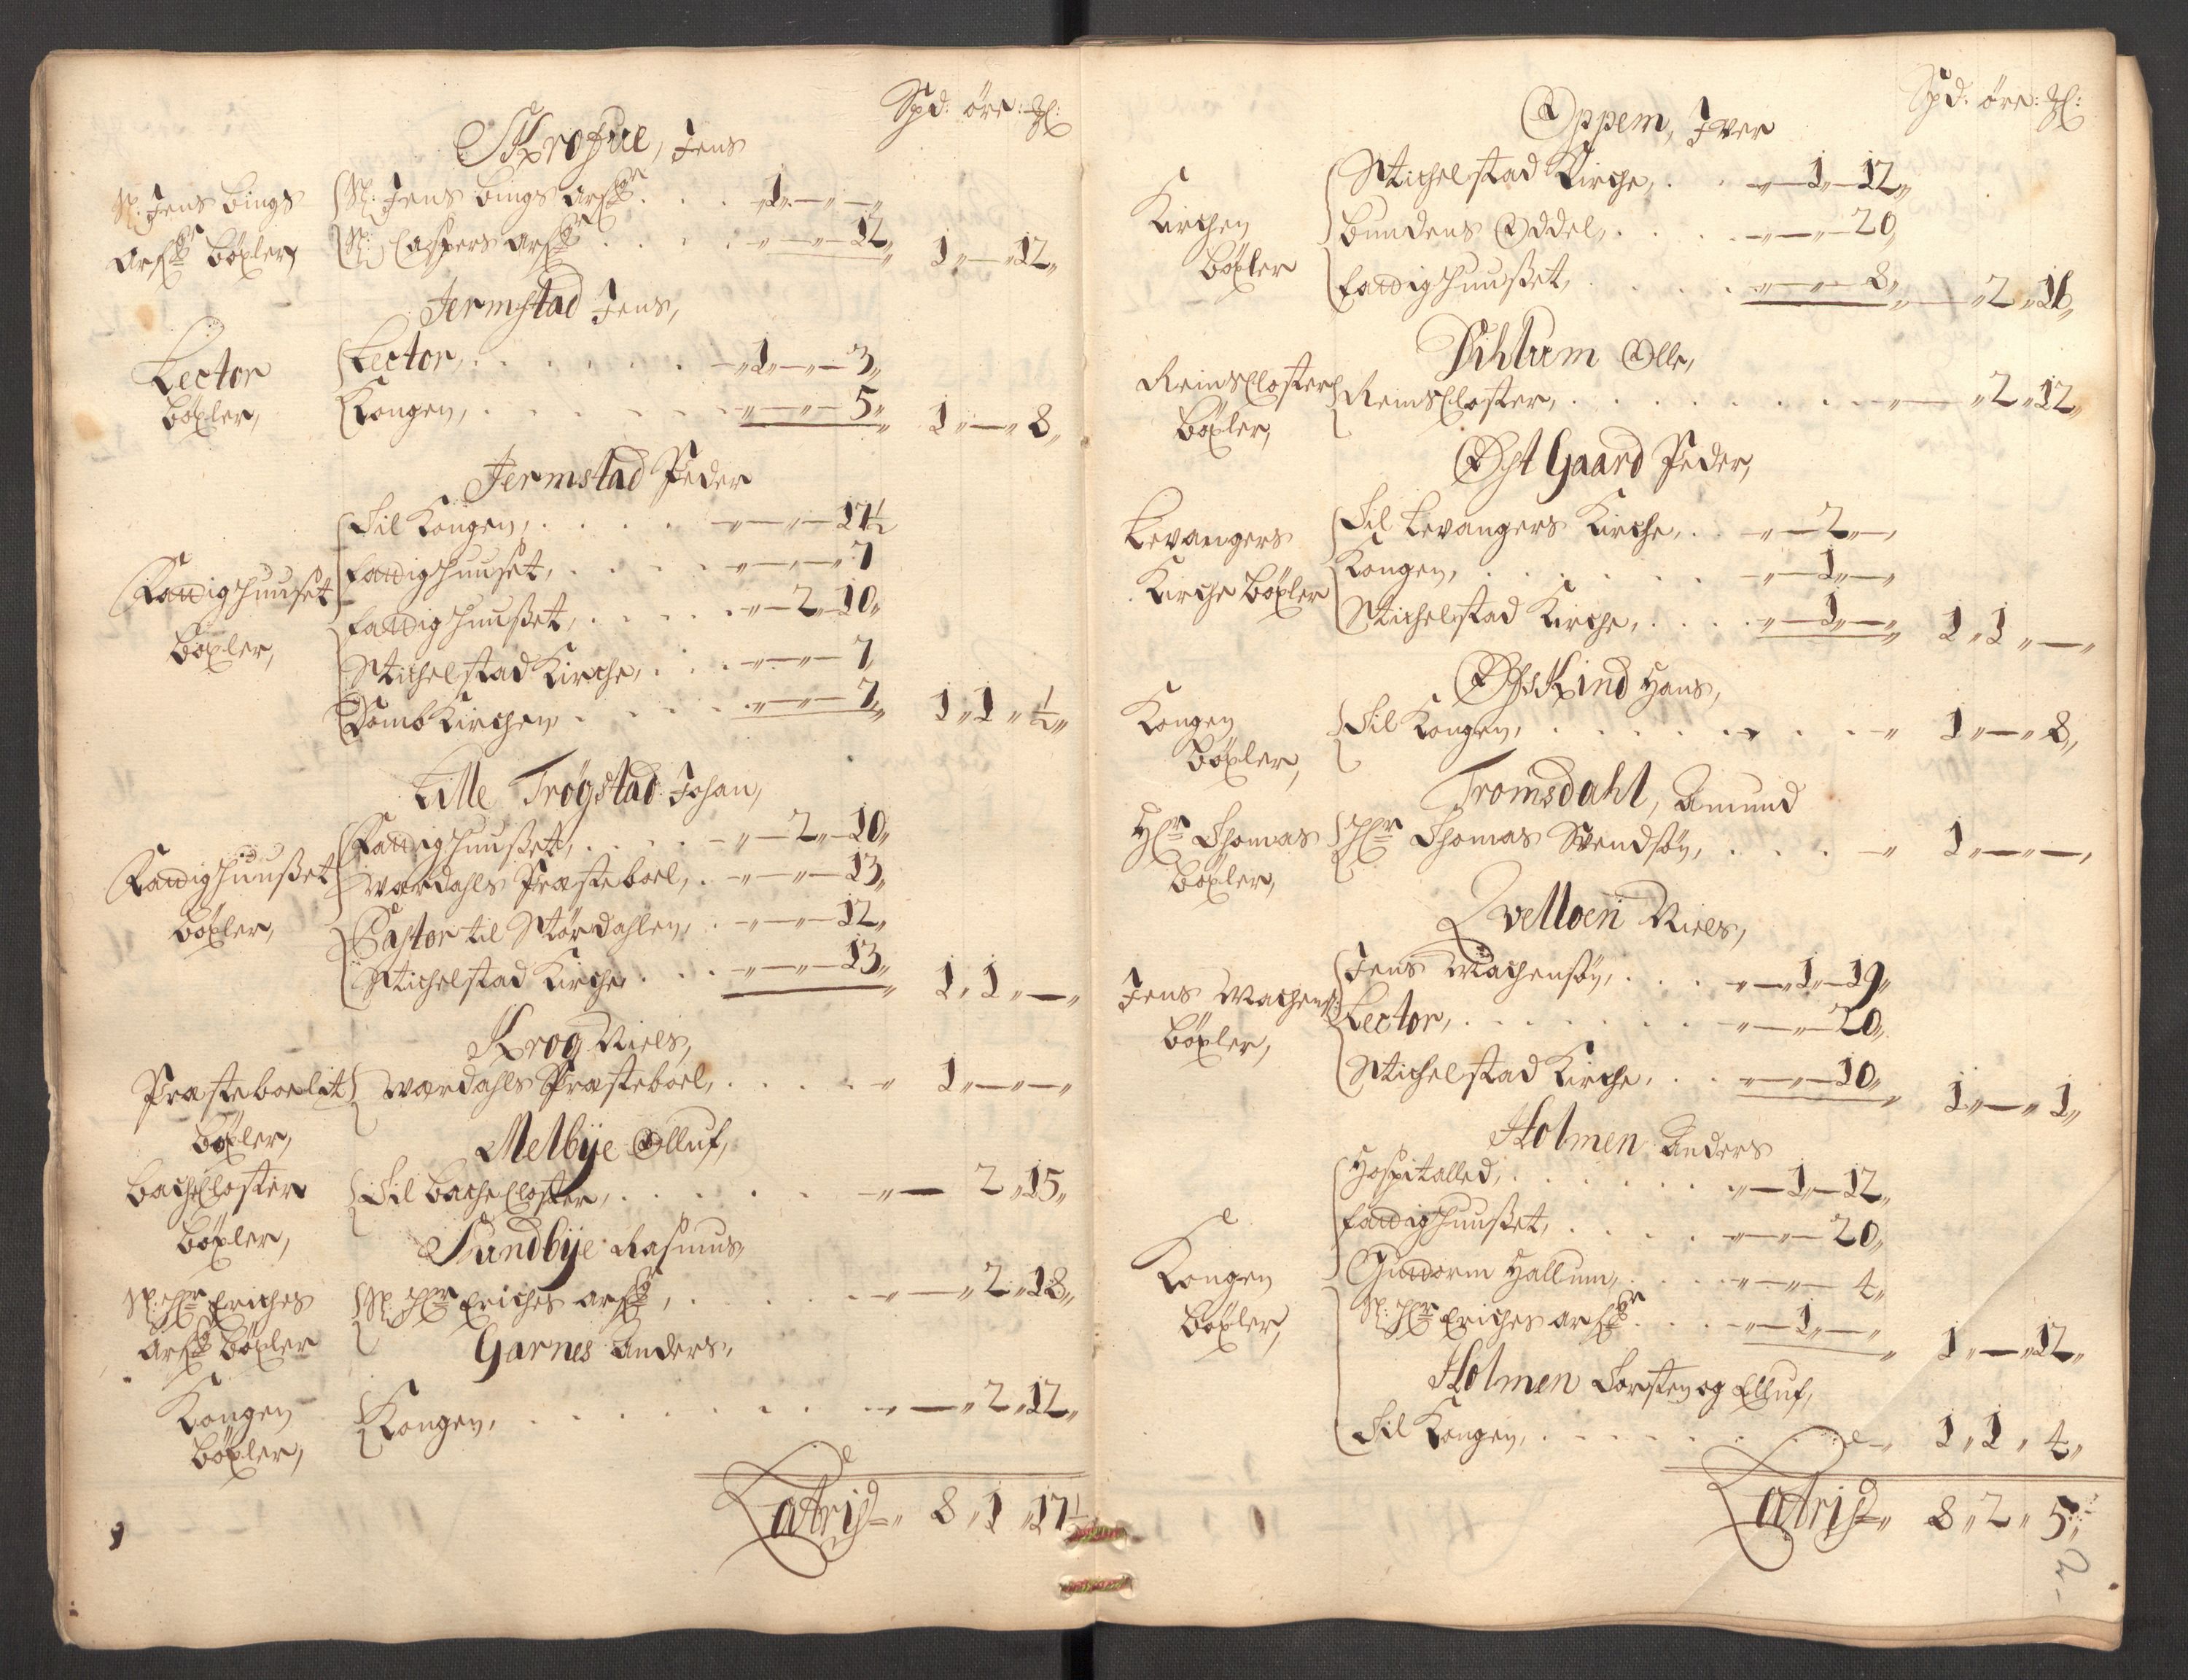 Spd: øre: Ꝣl:
Skrofue, Jens
Sl: Jens Bings
Arfr Böxler,
Sl: Jens Bings Arfr . . . 1,,—,,—,,
Sl: Caspers Arfr . . . ,,—,,—12,, 1,,—,,12,,
Jermstad Jens,
Lector
Böxler,
Lector, . . . ,,1,,—,,—3,,
Kongen, . . . ,,—,,—5,, 1,,—,,8,,
Jermstad Peder
Fattighuuset
Böxler,
Til Kongen, . . . ,,—,,—17½
Fattighuuset, . . . ,,—,,—7
Fattighuusset, . . . ,,—2,,10,,
Stichelstad Kirche, . . . ,,—,,—7,
Dombkirchen . . . ,,—,,—7,, 1,,1,,½,,
Lille Trøgstad Johan,
Fattighuusset
Böxler,
Fattighuusset, . . . ,,—2,,—10,,
Wærdahls Præsteboel, . ,,—,,—13,,
Pastor til Størdahlen, . ,,—,,—12,,
Stichelstad Kirche . . . ,,—,,—13,, 1,,1,,—,,
Krog Niels,
Præsteboelit
Böxler,
Wærdahls Præsteboel, . . . ,, 1,,—,,—,,
Melbye Olluf,
Bache Closter
Böxler,
Til Bache Closter, . . . ,,— 2,,15,,
Sundbye Rasmus,
Sl: Hr Eriches
Arfr Böxler
Sl: Hr Eriches Arfr, . . . ,,—,,2,,18,,
Garnes Anders,
Kongen
Böxler,
Kongen, . . . ,,—,,2,,12,,
Latris ,, 8,,1,,17½
Spd: øre: Ꝣl:
Oppem, Iver
Kirchen
Böxler
Stichelstad Kirche, . . ,,—1,,—12,,
Bundens Oddel, . . . ,,—,,—20,
Fattighuusset, . . . ,,—,,—8,, ,,—,,2,,16,,
Dihlum Olle,
Reins Closter
Böxler,
Reins Closter, . . . ,,—,,2,,12,,
Øst Gaard Peder,
Levangers
Kirche Böxler
Til Levangers Kirche, . . ,,—2,,—,
Kongen, . . . ,,—1,,—,,
Stichelstad Kirche, . . . ,,—1,,—,, 1,,1,,—,,
Øhskind Hans,
Kongen
Böxler,
Til Kongen, . . . ,, 1,,—,,8,,
Tromsdahl, Amund
Hr Thomas
Böxler,
Hr Thomas Svendsøn, . . . ,, 1,,—,,—,
Qvelloen Niels,
Jens Wachens:
Böxler,
Jens Wachensøn, . . . ,,—1,,—19,,
Lector, . . . ,,—,,—20,,
Stichelstad Kirche, . . ,,—,,—10,, 1,,—,,1,,
Holmen Anders
Kongen
Böxler,
Hospitalled, . . . ,,—1,,—12,,
Fattighuusset, . . . ,,—,,—20,,
Guttorm Hallum, . . . ,,—,,—4,,
Sl: Hr Eriches Arfr . . . ,,—1,,—,, 1,,—,,12,,
Holmen Torsten og Elluf,
Til Kongen, . . . ,, 1,,1,,4,,
Latris ,, 8,,2,,5,,